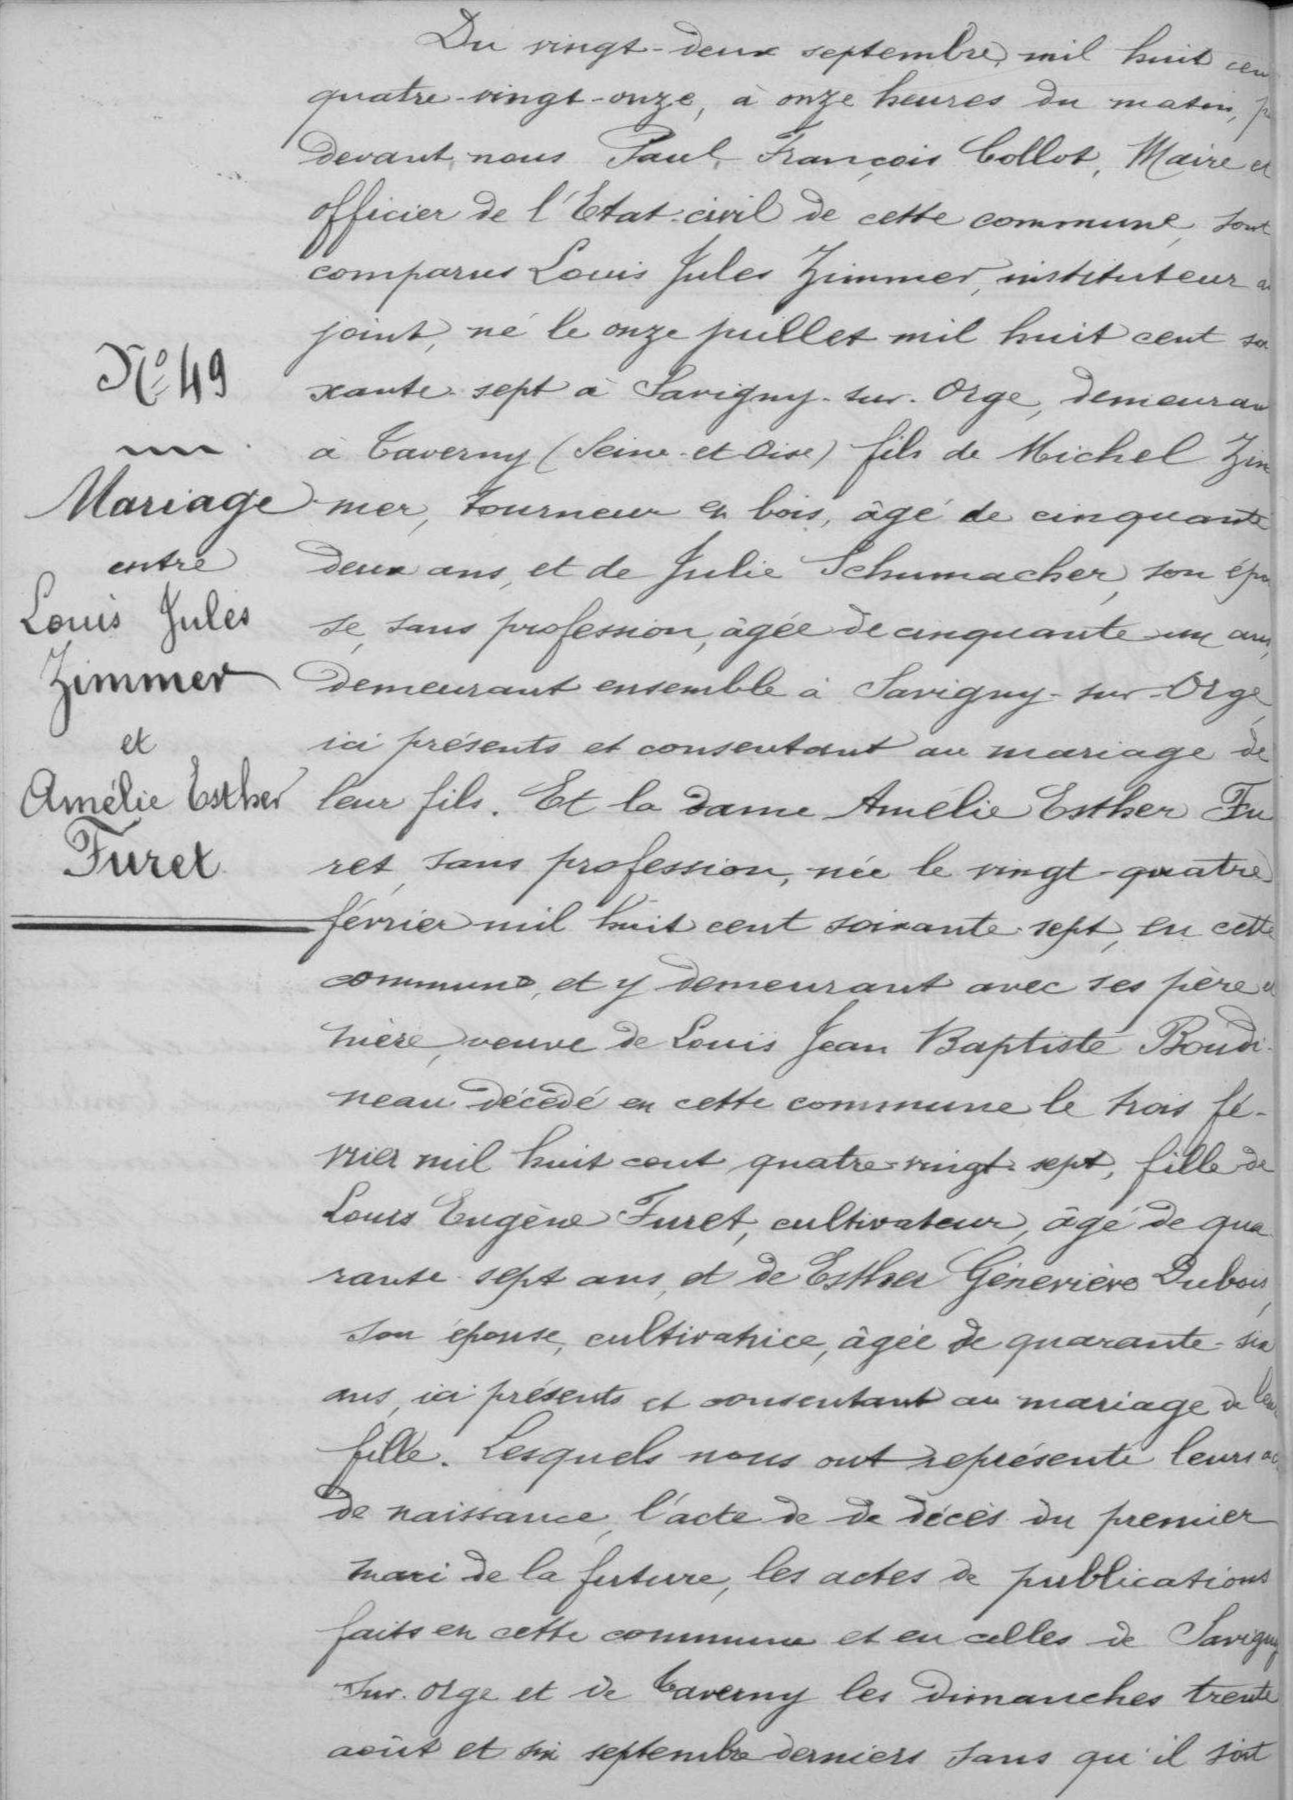 Du vingt-deux septembre mil huit cen
quatre-vingt-onze, à onze heures du matin, p
devant nous Paul François Collot, Maire et
officier de l'Etat-civil de cette commune, sont
comparus Louis Jules Zimmer, instituteur a
joint, né le onze juillet mil huit cent soi
xante-sept à Savigny-sur-Orge, demeuran
à Taverny (Seine-et-Oise) fils de Michel Zim
mer, tourneur en bois, âgé de cinquante
deux ans, et de Julie Schumacher, son épou
se, sans profession, âgée de cinquante un ans,
demeurant ensemble à Savigny-sur-Orge,
ici présents et consentant au mariage de
leur fils. Et la dame Amélie Esther Fu
ret, sans profession, née le vingt-quatre
février mil huit cent soixante-sept, en cette
commune, et y demeurant avec ses père et
mère, veuve de Louis Jean Baptiste Boudi-
neau décédé en cette commune le trois fé-
vrier mil huit cent quatre-vingt-sept, fille de
Louis Eugène Furet, cultivateur, âgé de qua
rante-sept ans, et de Esther Géneviève Dubois,
son épouse, cultivatrice, âgée de quarante-six
ans, ici présents et consentant au mariage de leur
fille. Lesquels nous ont représenté leurs ac
de naissance, l'acte de de décès du premier
mari de la future, les actes de publications
faits en cette commune et en celles de Savigny
sur-Orge et de Taverny les dimanches trente
août et six septembre derniers sans qu'il soit
N° 49
Mariage
entre
Louis Jules
Zimmer
et
Amélie Esther
Furet